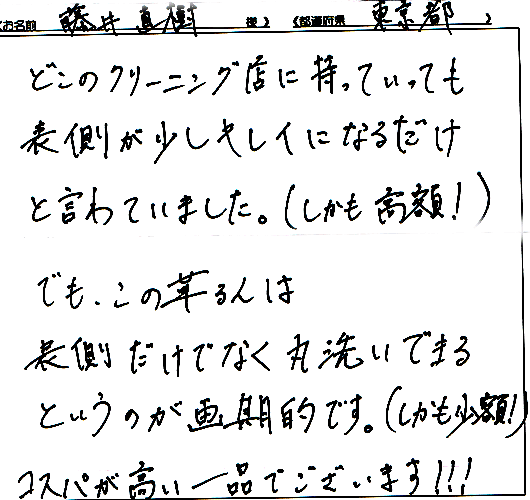 お名前 藤井直樹 様 都道府県 東京都
どこのクリーニング店に持っていっても
表側が少しキレイになるだけ
と言われていました。(しかも高額!)
でも、この革るんは
表側だけでなく丸洗いできる
というのが画期的です。(しかも少額!)
コスパが高い一品でございます!!!